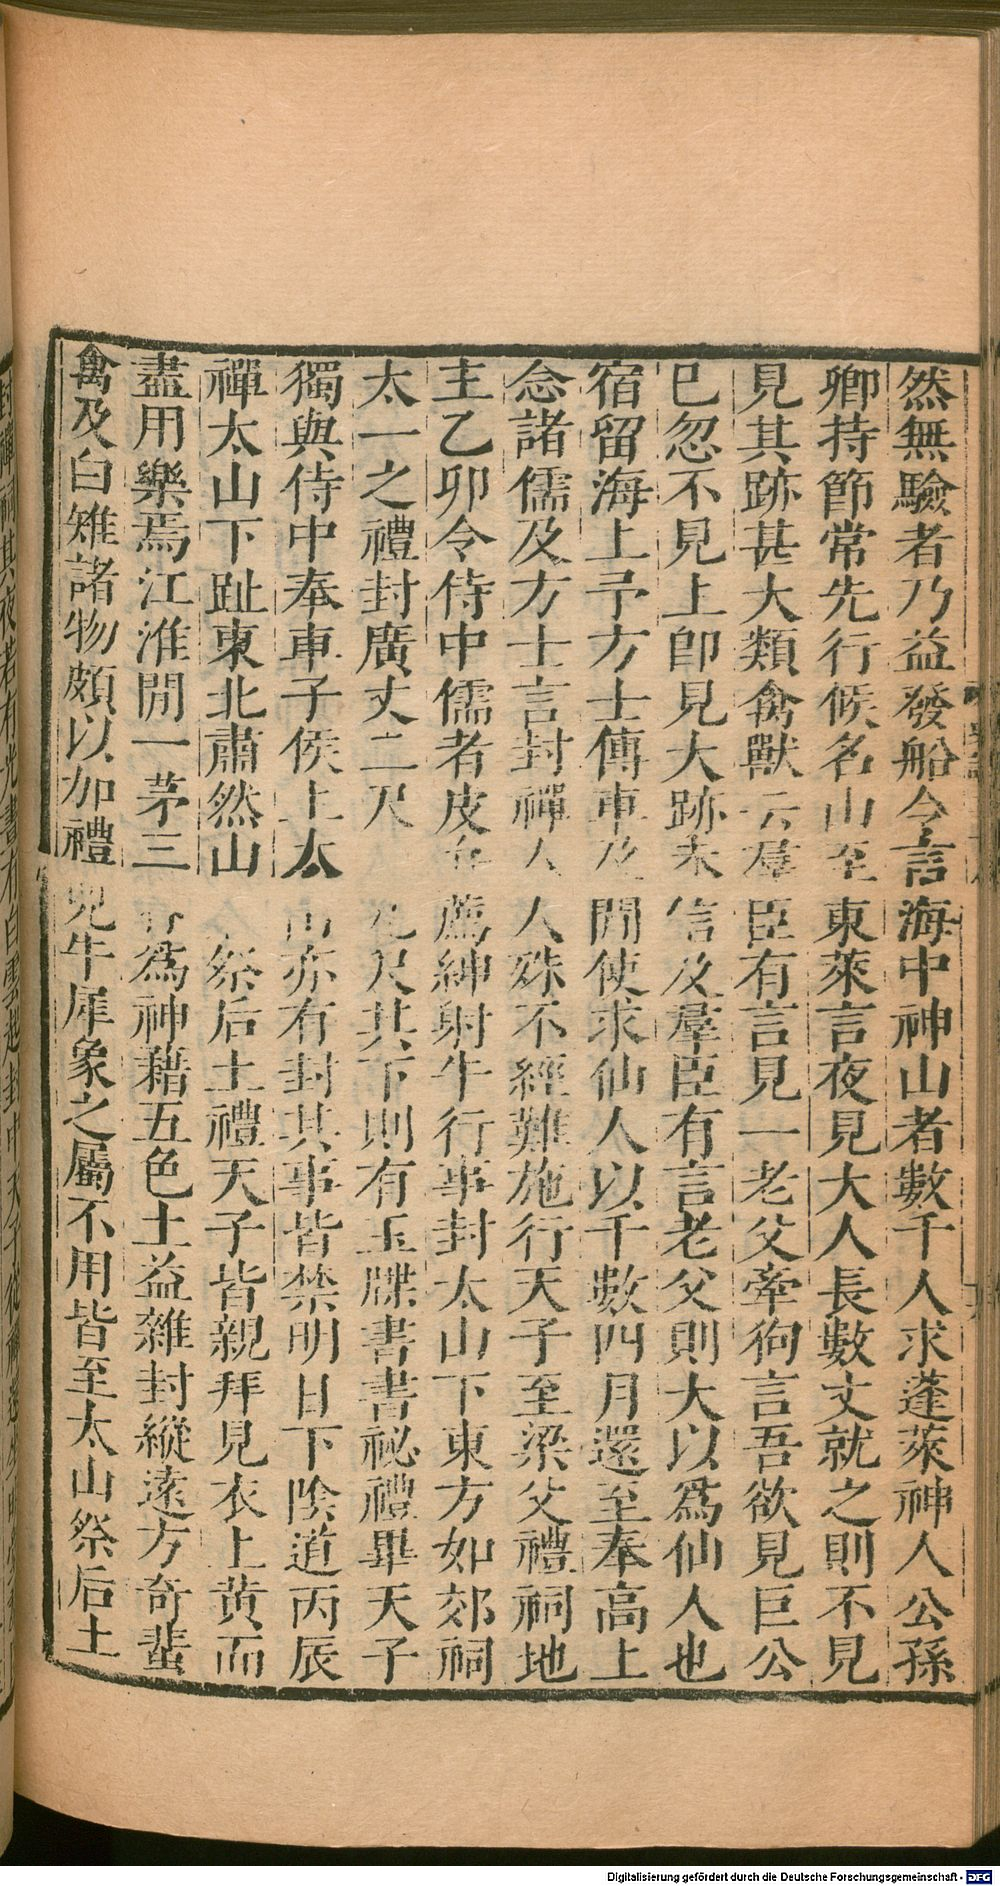 然無驗者乃益發船令言海中神山者數千人求蓬萊神人公孫
卿持節常先行候名山至東萊言夜見大人長數丈就之則不見
見其跡甚大類禽獸云羣臣有言見一老父牽狗言吾欲見巨公
已忽不見上卽見大跡未信及羣臣有言老父則大以爲仙人也
宿留海上予方士傳車及閒使求仙人以千數四月還至奉高上
念諸儒及方士言封禪人人殊不經難施行天子至梁父禮祠地
主乙卯令侍中儒者皮弁薦紳射牛行事封太山下東方如郊祠
太一之禮封廣丈二尺 九尺其下則有玉牒書書祕禮畢天子
獨與侍中奉車子侯上太 山亦有封其事皆禁明日下陰道丙辰
禪太山下趾東北肅然山 祭后土禮天子皆親拜見衣上黃而
盡用樂焉江淮閒一茅三脊爲神藉五色土益雜封縱遠方奇蜚
禽及白雉諸物頗以加禮兕牛犀象之屬不用皆至太山祭后土
Digitalisierung gefördert durch die Deutsche Forschungsgemeinschaft - DFG